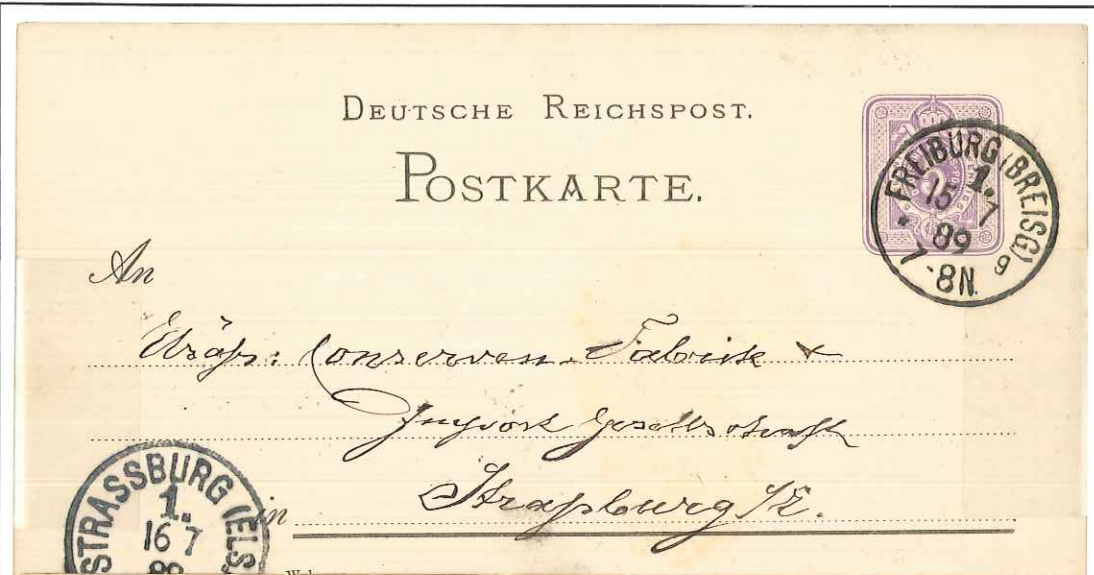 DEUTSCHE REICHSPOST.
POSTKARTE.
FREIBURG (BREISG)
1.
15 7
89
7-8N.
An
Elsäß: Conserven-Fabrik &
Import Gesellschaft
in Straßburg i/E.
STRASSBURG (ELS
1.
16 7
89